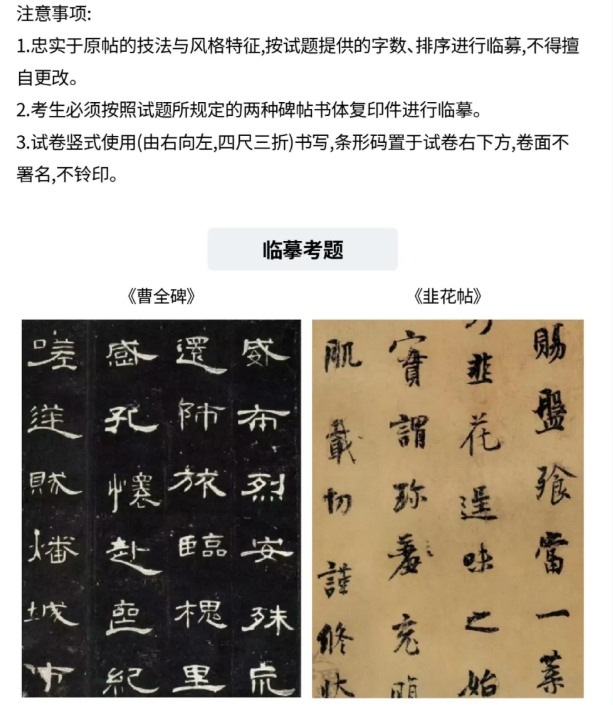 注意事项:
1.忠实于原帖的技法与风格特征,按试题提供的字数、排序进行临募,不得擅
自更改。
2.考生必须按照试题所规定的两种碑帖书体复印件进行临摹。
3.试卷竖式使用(由右向左,四尺三折)书写,条形码置于试卷右下方,卷面不
署名,不铃印。
临摹考题
《曹全碑》
威布烈安殊荒
還師旅臨槐里
感孔懷赴喪紀
嗟逆賊燔城市
《韭花帖》
賜盤飱當一葉
韭花逞味之始
實謂珍羞充
肌載切謹脩狀